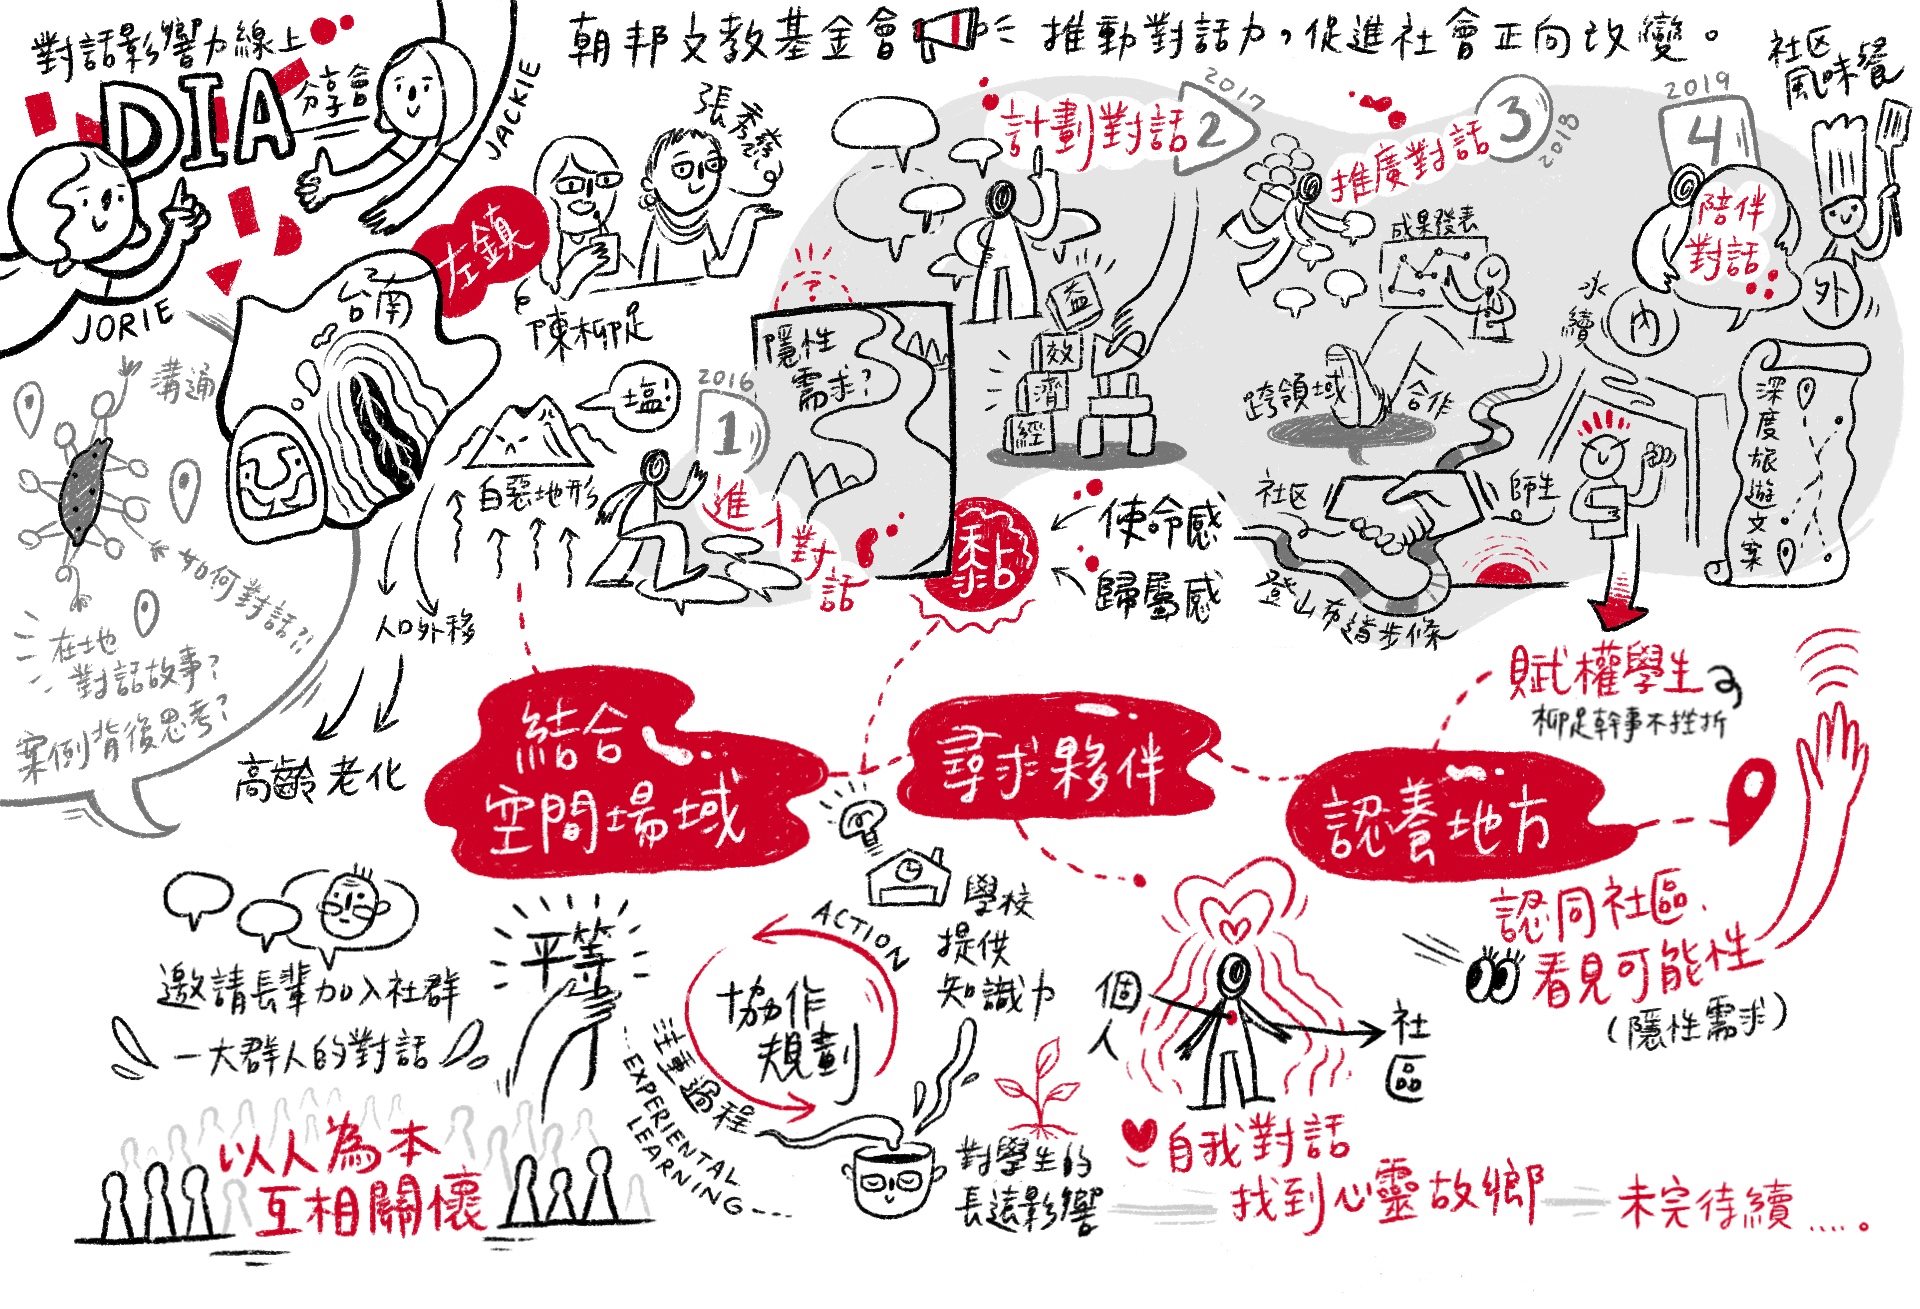 對話影響力線上
分享會
DIA
JACKIE
JORIE
朝邦文教基金會
推動對話力,促進社會正向改變。
溝通
如何對話?!
在地
對話故事?
案例背後思考?
左鎮
台南
張秀發
陳柳足
塩!
白惡地形
人口外移
高齡老化
2016
1
進入對話
隱性
需求?
?
2017
計劃對話 2
益
效
濟
經
2018
推廣對話 3
成果發表
跨領域
合作
2019
4
陪伴
對話
社区
風味餐
外
內
永續
深度旅遊文案
社区
師生
登山布道步條
黏
使命感
歸屬感
結合
空間場域
尋求夥伴
認養地方
賦權學生
柳足幹事不挫折
認同社區、
看見可能性
(隱性需求)
邀請長輩加入社群
一大群人的對話
以人為本
互相關懷
平等
ACTION
協作
規劃
注重過程
EXPERIENTAL
LEARNING
學校
提供
知識力
對學生的
長遠影響
個人
社區
自我對話
找到心靈故鄉
未完待續.....。